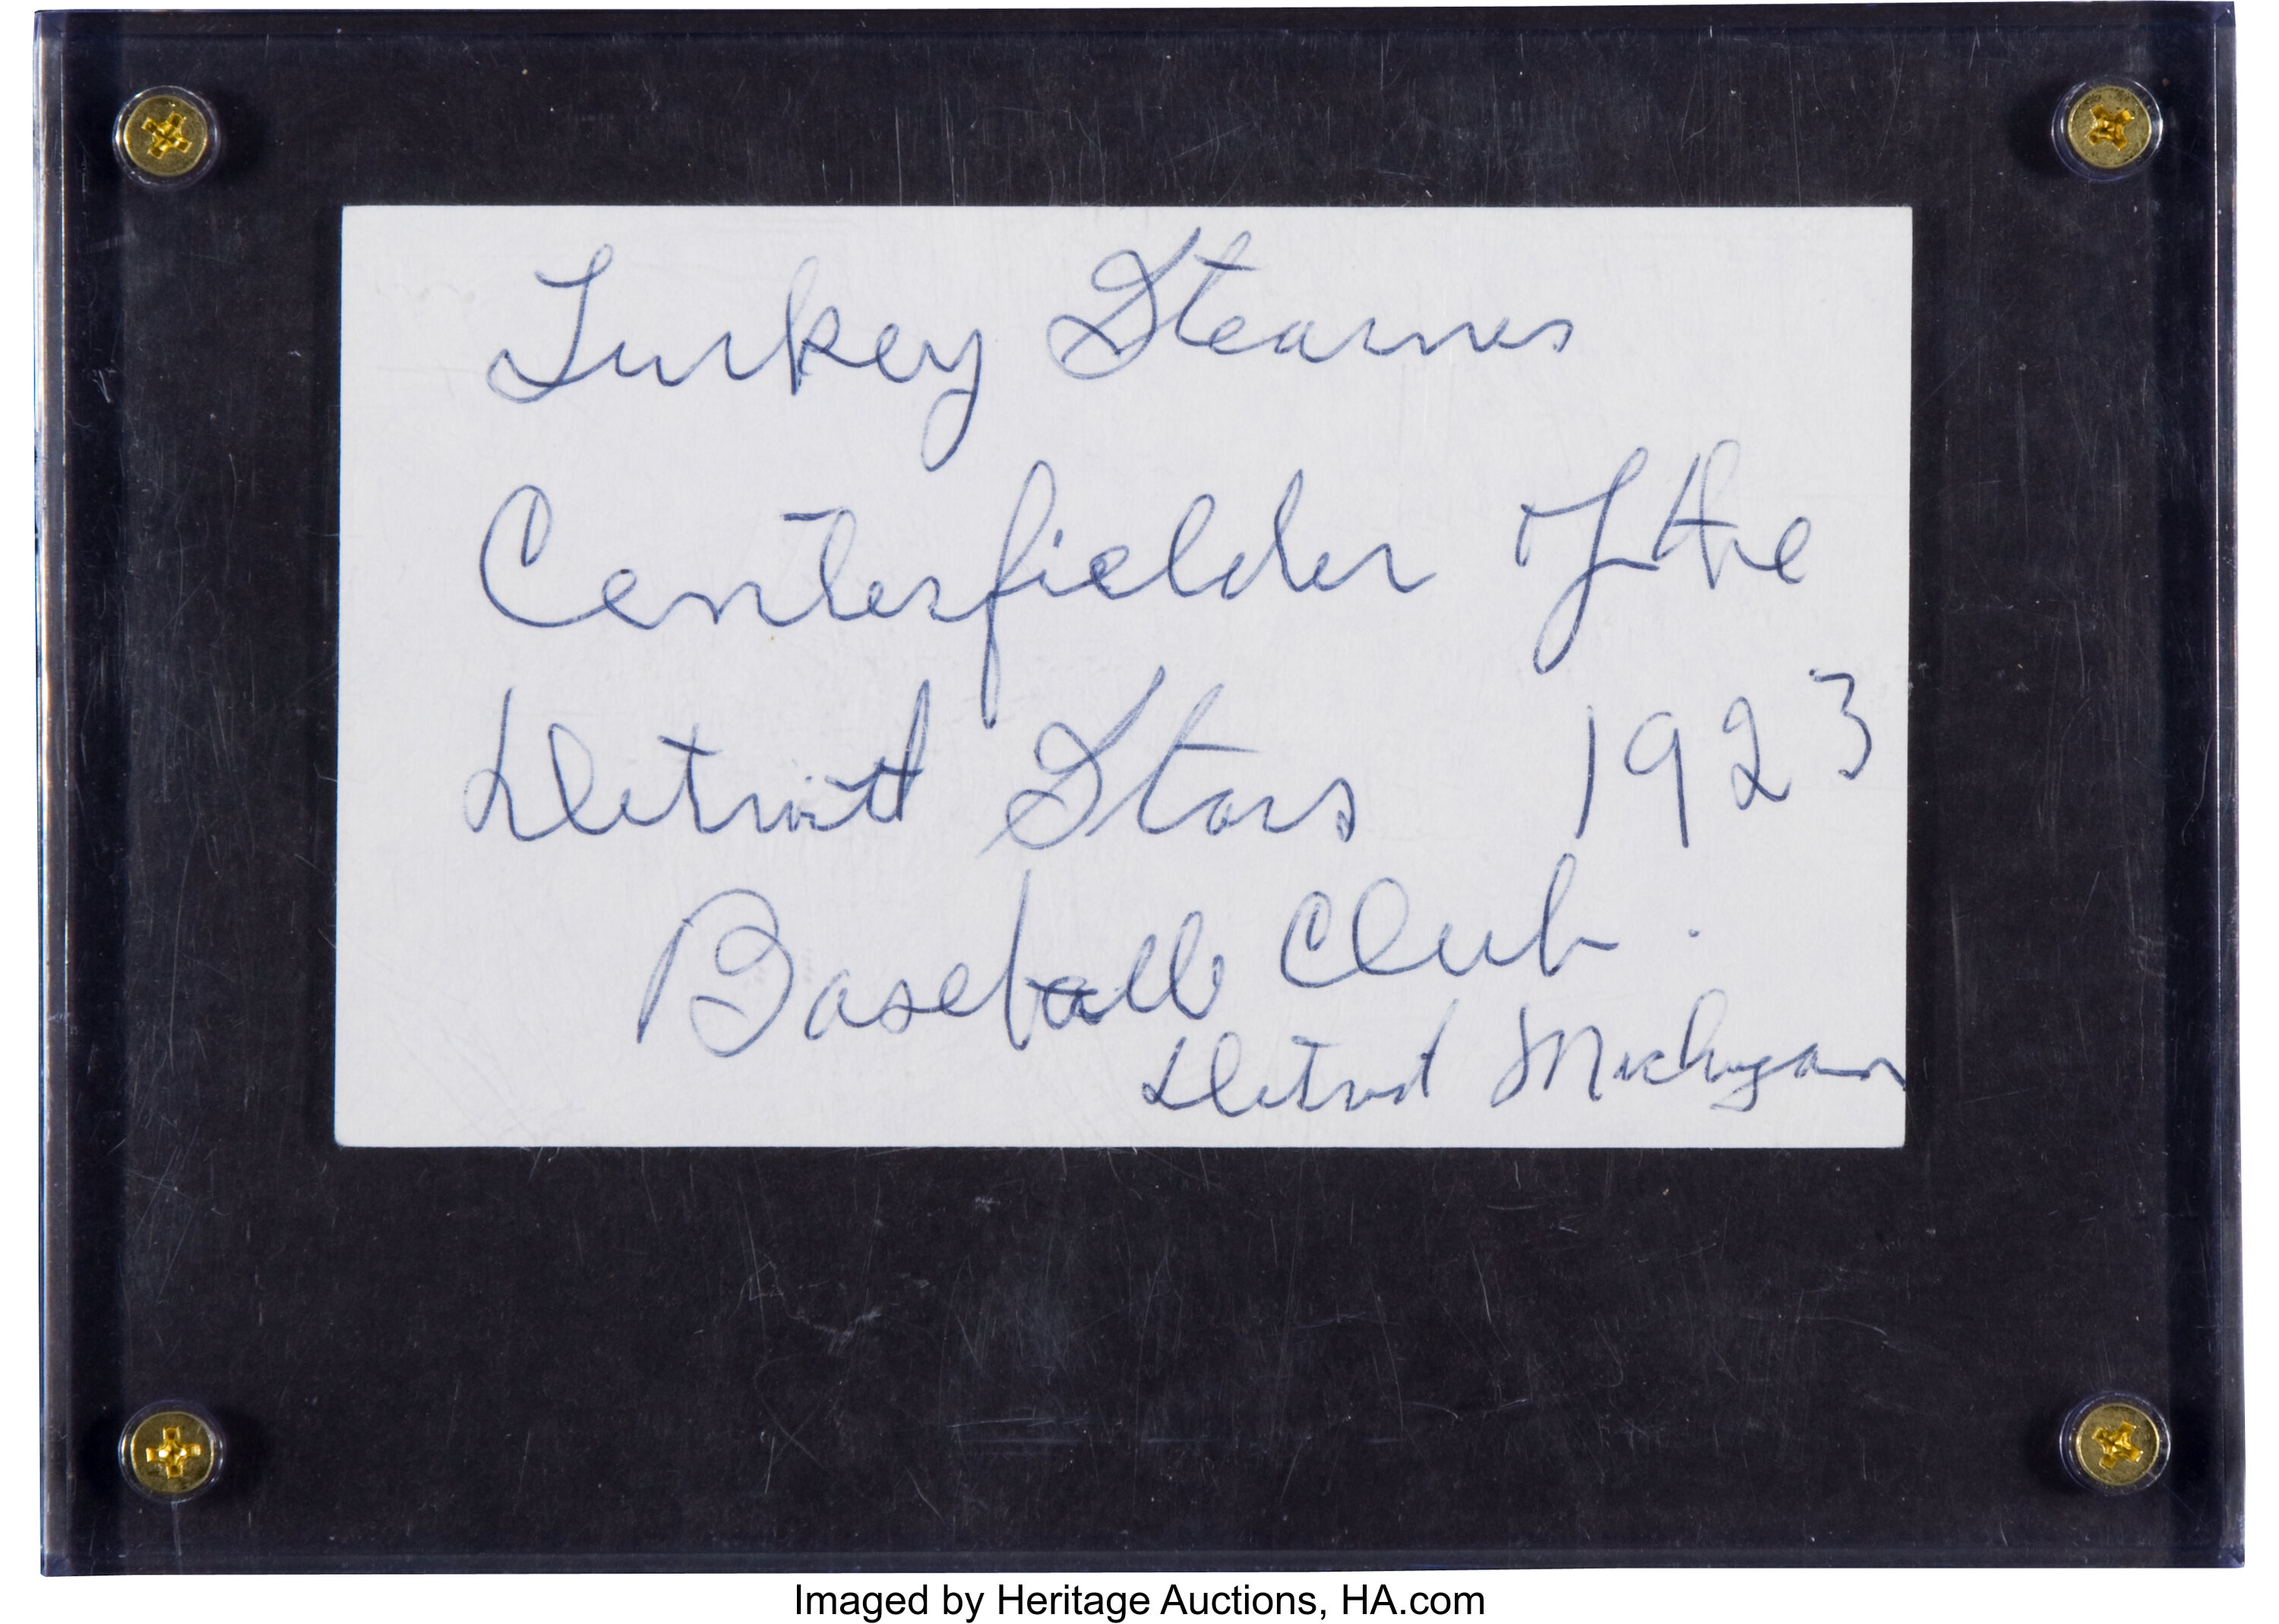 Turkey Stearnes
Centerfielder of the
Detroit Stars 1923
Baseball Club.
Detroit Michigan
Imaged by Heritage Auctions, HA.com